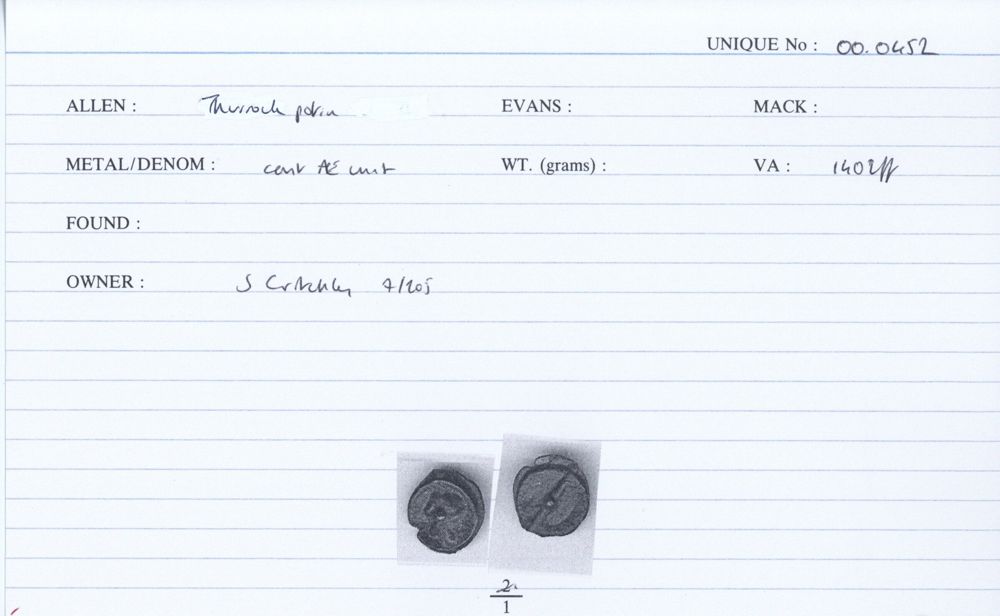 UNIQUE No : 00.0452
ALLEN : Thurrock potin EVANS : MACK :
METAL/DENOM : cast AE unit WT. (grams) : VA : 1402ff
FOUND :
OWNER : S Critchley
2
1